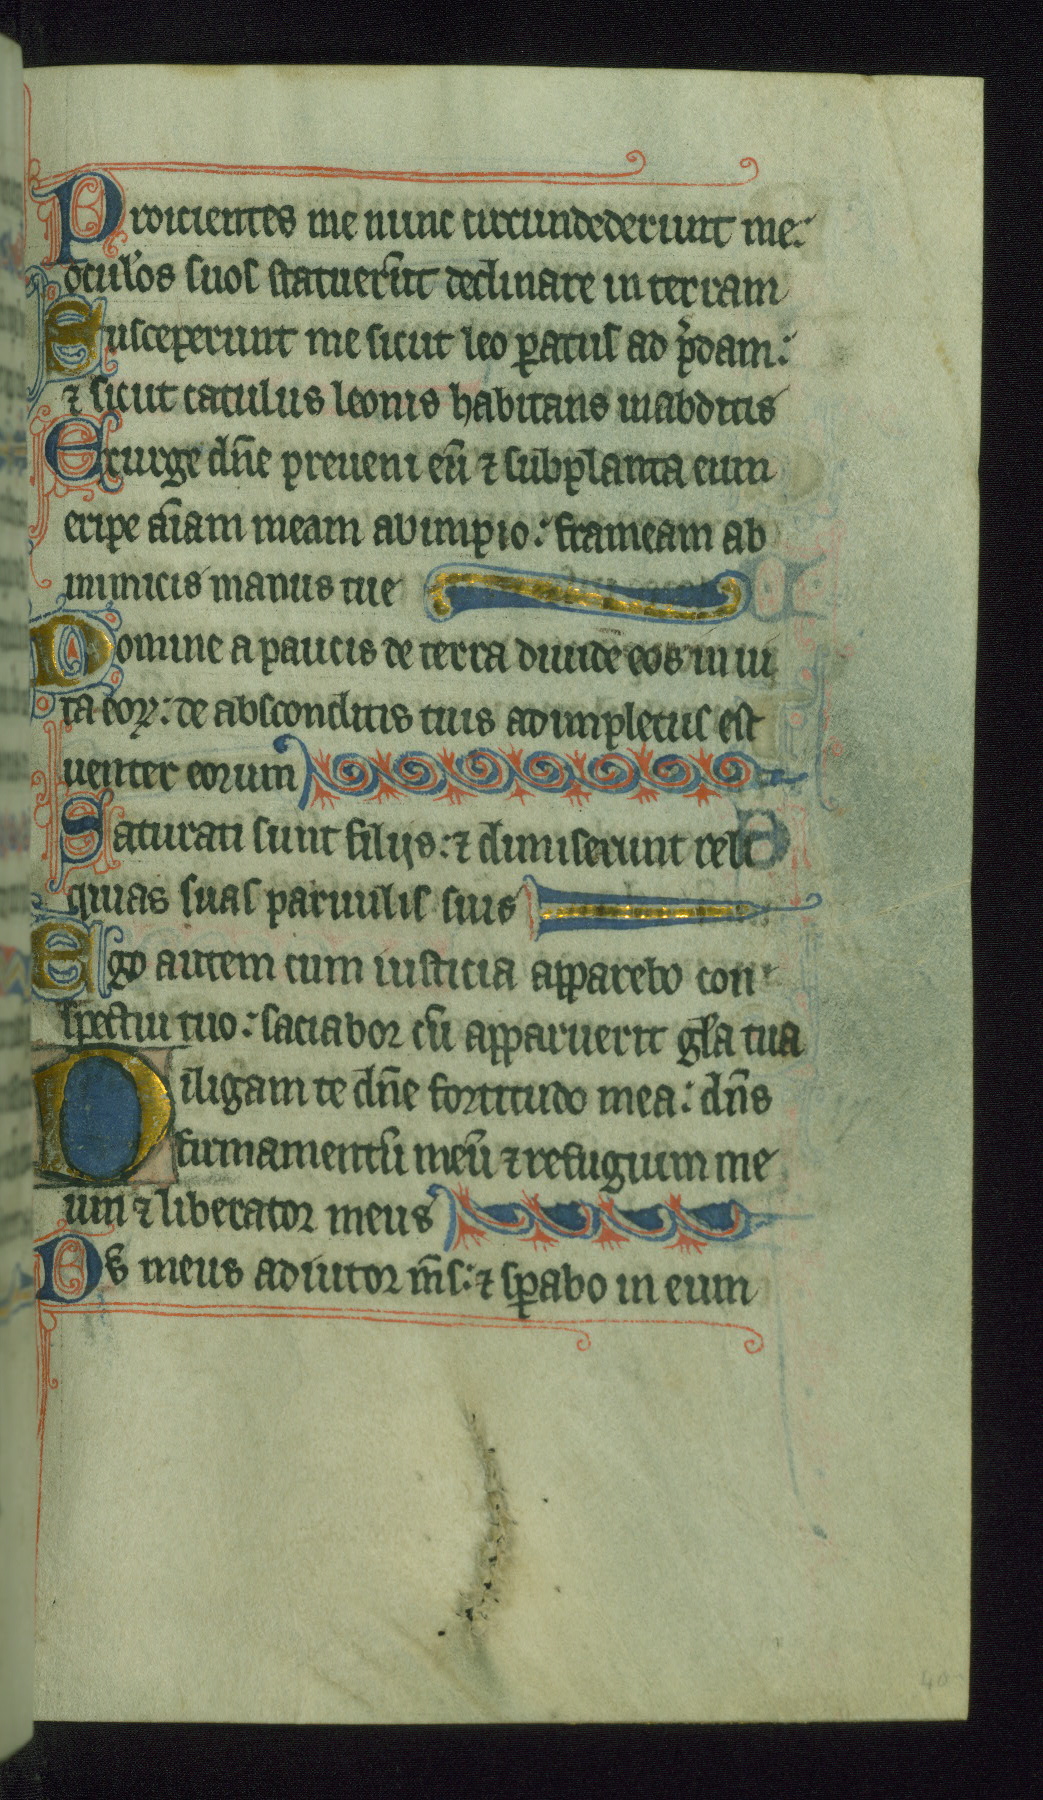 Proicientes me nunc circundederunt me:
oculos suos statuerūt declinare in terram
Susceperunt me sicut leo ꝑatus ad p̾dam:
⁊ sicut catulus leonis habitans inabditis
Exurge dn̄e preueni eū ⁊ subplanta eum
eripe aīam meam ab impio: frameam ab
inimicis manus tue
Domine a paucis de terra diuide eos in ui
ta eoꝝ: de absconditis tuis adimpletus est
uenter eorum
Saturati sunt filijs: ⁊ dimiserunt reli
quias suas paruulis suis
Ego autem cum iusticia apparebo con
spectui tuo: saciabor cū apparuerit gl̄a tua
Diligam te dn̄e fortitudo mea: dn̄s
firmamentū meū ⁊ refugium me
um ⁊ liberator meus
Ds̄ meus adiutor m̄s: ⁊ sꝑabo in eum
40